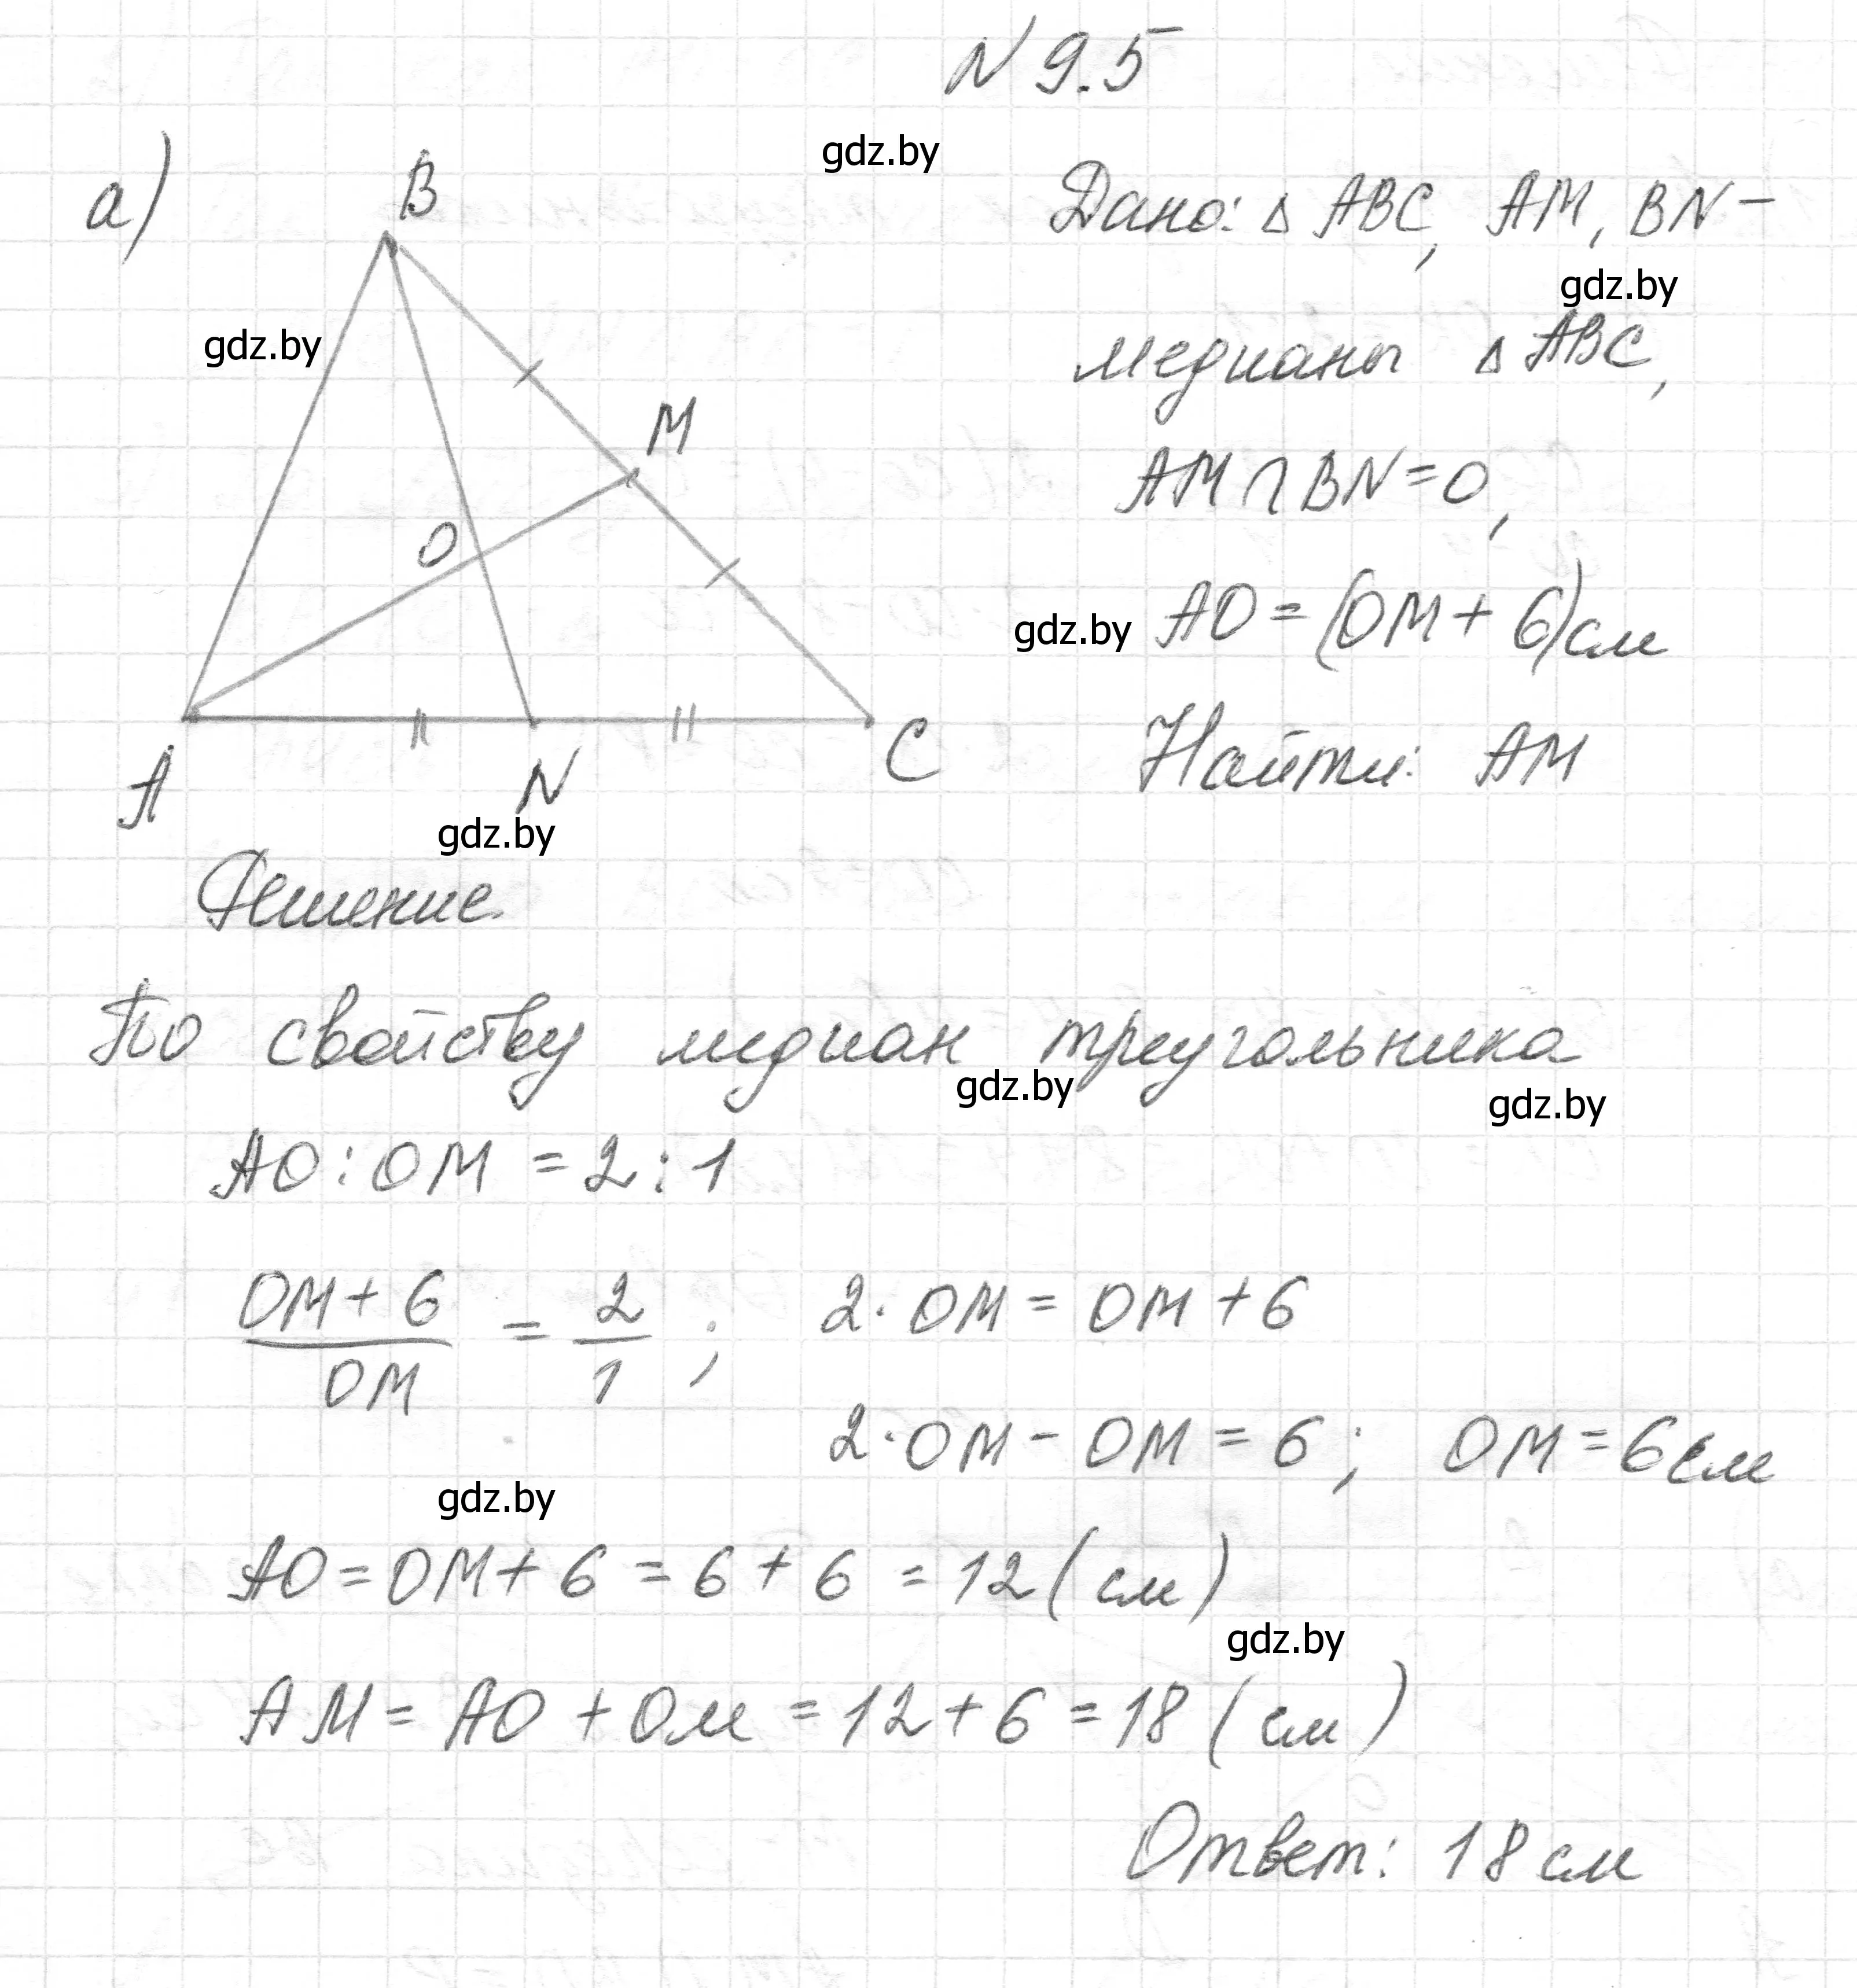 N 9.5
gdz.by
а)
B
Дано: Δ ABC, AM, BN –
gdz.by
gdz.by
медианы Δ ABC,
M
AM ∩ BN = O,
O
gdz.by
AO = (OM + 6) см
A
N
C
Найти: AM
gdz.by
Решение
По свойству медиан треугольника
gdz.by
gdz.by
AO : OM = 2 : 1
(OM + 6)/OM = 2/1 ; 2 · OM = OM + 6
2 · OM – OM = 6 ; OM = 6 см
gdz.by
AO = OM + 6 = 6 + 6 = 12 (см)
gdz.by
AM = AO + OM = 12 + 6 = 18 (см)
Ответ: 18 см